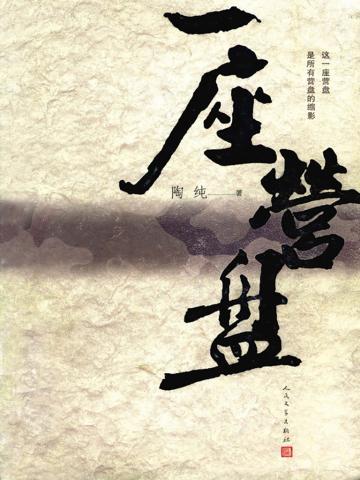 一座營盤
这一座营盘
是所有营盘的缩影
陶纯 著
人民文学出版社